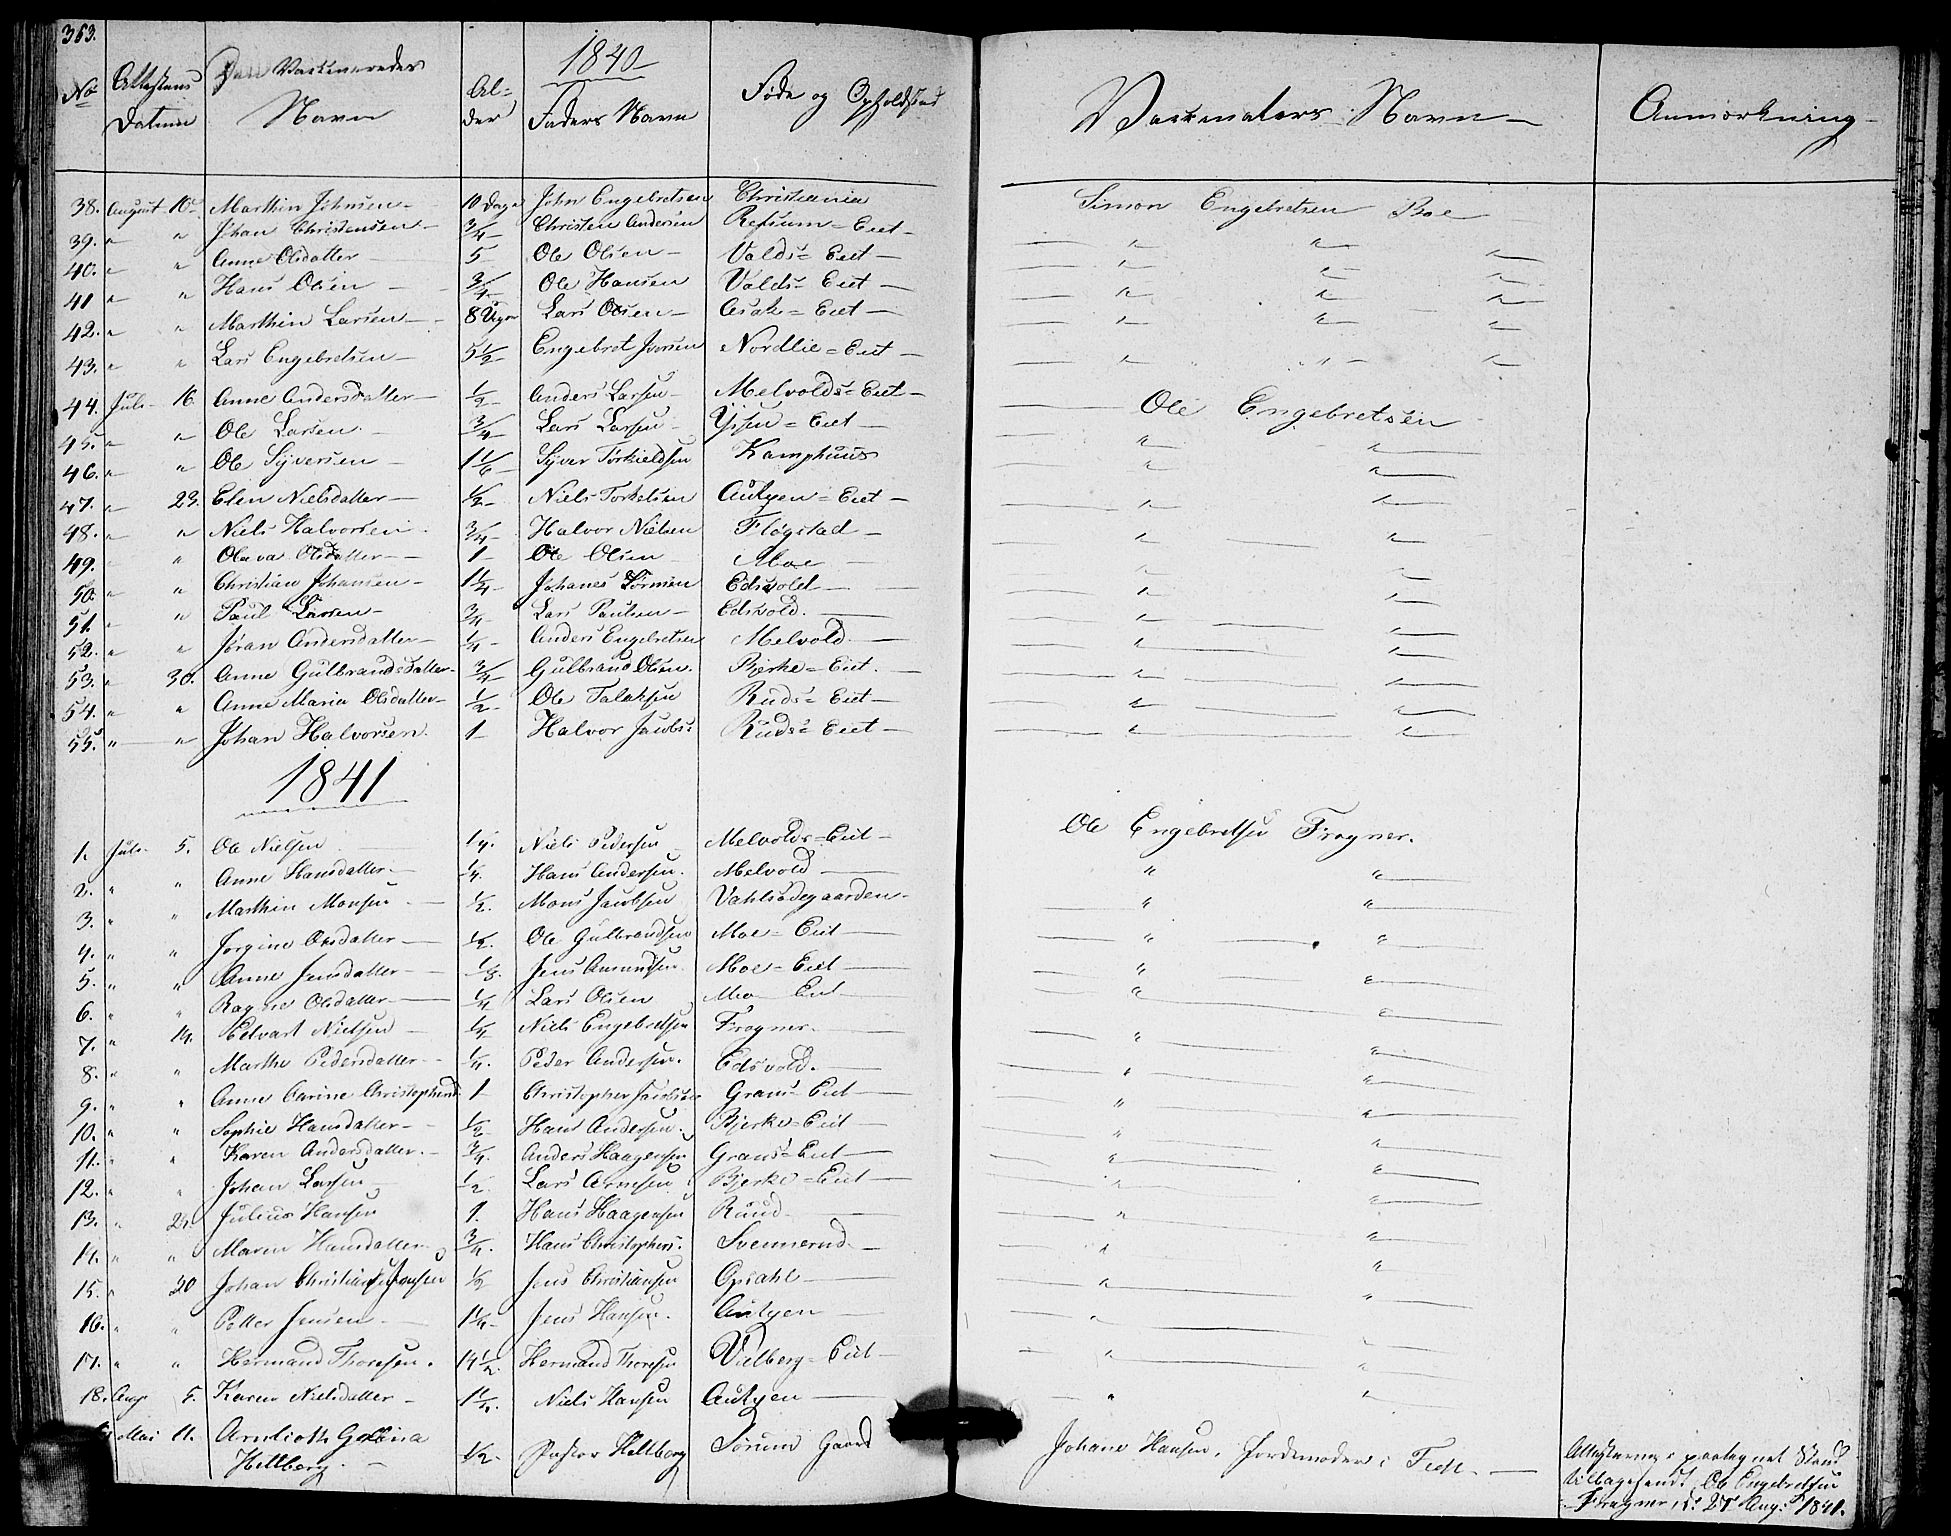 353.
1840
No Attestens Datum Den Vaccineredes Navn Al=der Faders Navn Føde og Opholdsted Vaccinateurs Navn Anmærkning
38. August 10 Marthin Johnsen 10 Dage John Engebretsen Christiania Simon Engebretsen Boe
39. " " Johan Christensen 3/4 Christen Andersen Refsum=Eiet " "
40. " " Anne Olsdatter 5 Ole Olsen Valds=Eiet " " "
41 " " Hans Olsen 3/4 Ole Hansen Valds=Eiet " " "
42. " " Marthin Larsen 8 Uger Lars Olsen Asak=Eiet " " "
43. " " Lars Engebretsen 5 1/2 Engebret Iversen Nordlie=Eiet " " "
44. Juli 16. Anne Andersdatter 1/2 Anders Larsen Melvolds=Eiet Ole Engebretsen
45. " " Ole Larsen 3/4 Lars Larsen =Eiet " "
46. " " Ole Syversen 1 1/6 Syver Torkieldsen Kamphuus " "
47. " 23. Elen Nielsdatter 1/2 Niels Torkelsen Autyen=Eiet " "
48. " " Niels Halvorsen 3/4 Halvor Nielsen Fløgstad " "
49. " " Olava Olsdatter 1 Ole Olsen Moe " "
50. " " Christian Johansen 1 1/4 Johanes Edsvold " "
51. " " Paul Larsen 3/4 Lars Paulsen Edsvold. " "
52. " " Jøran Andersdatter 1/4 Anders Engebretsen Melvold " "
53. " 30. Anne Gulbrandsdatter 3/4 Gulbrand Olsen. Bjerke=Eiet. " "
54. " " Anne Maria Olsdatter 1/2 Ole Talaksen Ruds=Eiet " "
55. " " Johan Halvorsen. 1 Halvor Jacobs: Ruds=Eiet " "
1841
1. Juli 5. Ole Nielsen 1/4. Niels Pedersen Melvolds=Eiet Ole Engebretsen Frogner.
2. " " Anne Hansdatter 1/4. Hans Andersen. Melvold " "
3. " " Marthin Monsen 1/2. Mons Jacobsen Vahlsødegaarden. " "
4. " " Jorgine Olsdatter 1/2. Ole Gulbrandsen Moe=Eiet " "
5. " " Anne Jensdatter 1/8. Jens Amundsen. Moe=Eiet " "
6. " " Ragne Olsdatter 1/4 Lars Olsen Moe Eiet " "
7. " 14. Edvart Nielsen 1/4 Niels Engebretsen Frogner. " "
8. " " Marthe Pedersdatter 1/4. Peder Andersen. Edsvold. " "
9. " " Anne Carine Christophersd 1 Christopher Jacobsen Grans=Eiet " "
10. " " Sophie Hansdatter 1/2 Hans Andersen. Bjerke=Eiet " "
11. " " Karen Andersdatter. 3/4. Anders Haagensen Grans=Eiet " "
12. " " Johan Larsen 1/2. Lars Arnesen Bjerke=Eiet " "
13. " 24. Julius Hansen 1. Hans Haagensen Ruud " "
14. " " Maren Hansdatter 3/4. Hans Christophers. Svennerud. " "
15. " 30 Johan Christian Jensen 1/2 Jens Christiansen Opsahl " "
16. " " Petter Jensen 1 1/4. Jens Hansen. Autyen " "
17. " " Hermand Thoresen. 14 1/2. Hermand Thoresen Vielberg=Eiet " "
18. Aug 5. Karen Nielsdatter 1 Niels Hansen Autyen " "
Mai 11. Arnlioth
Hellberg. 1/2. Pastor Hellberg Sørum Gaard Johane Hansen, Jordemoder i Fedt. Attesterne i paategnet Stand
tilbagesendt Ole Engebretsen
Frogner, d: 27 Aug: 1841.